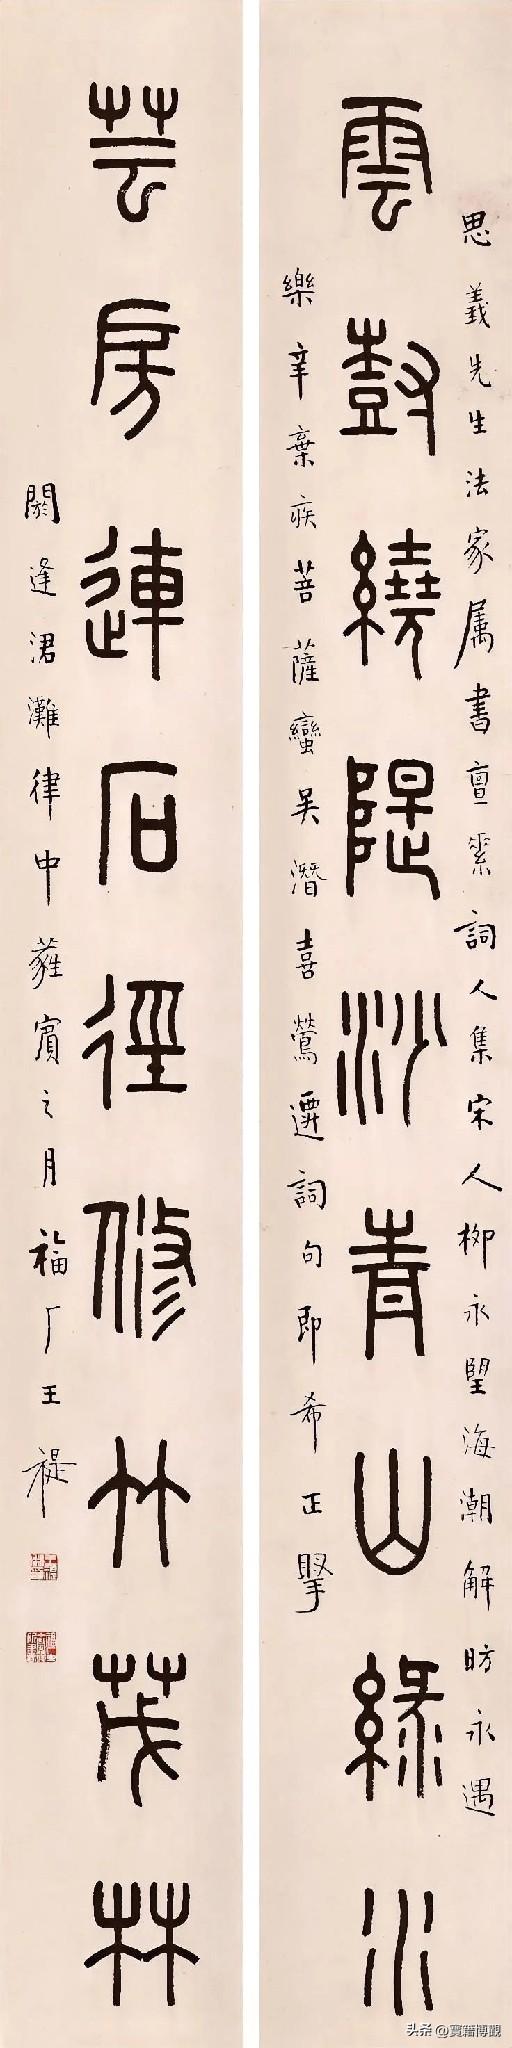 雲樹繞隄沙青山綠水
思義先生法家属書亶素詞人集宋人柳永望海潮解昉永遇
樂辛棄疾菩薩蠻吴潛喜鶯遷詞句即希正掔
芸房連石徑修竹茂林
閼逢涒灘律中蕤賓之月福厂王禔
头条 @寶籍博觀